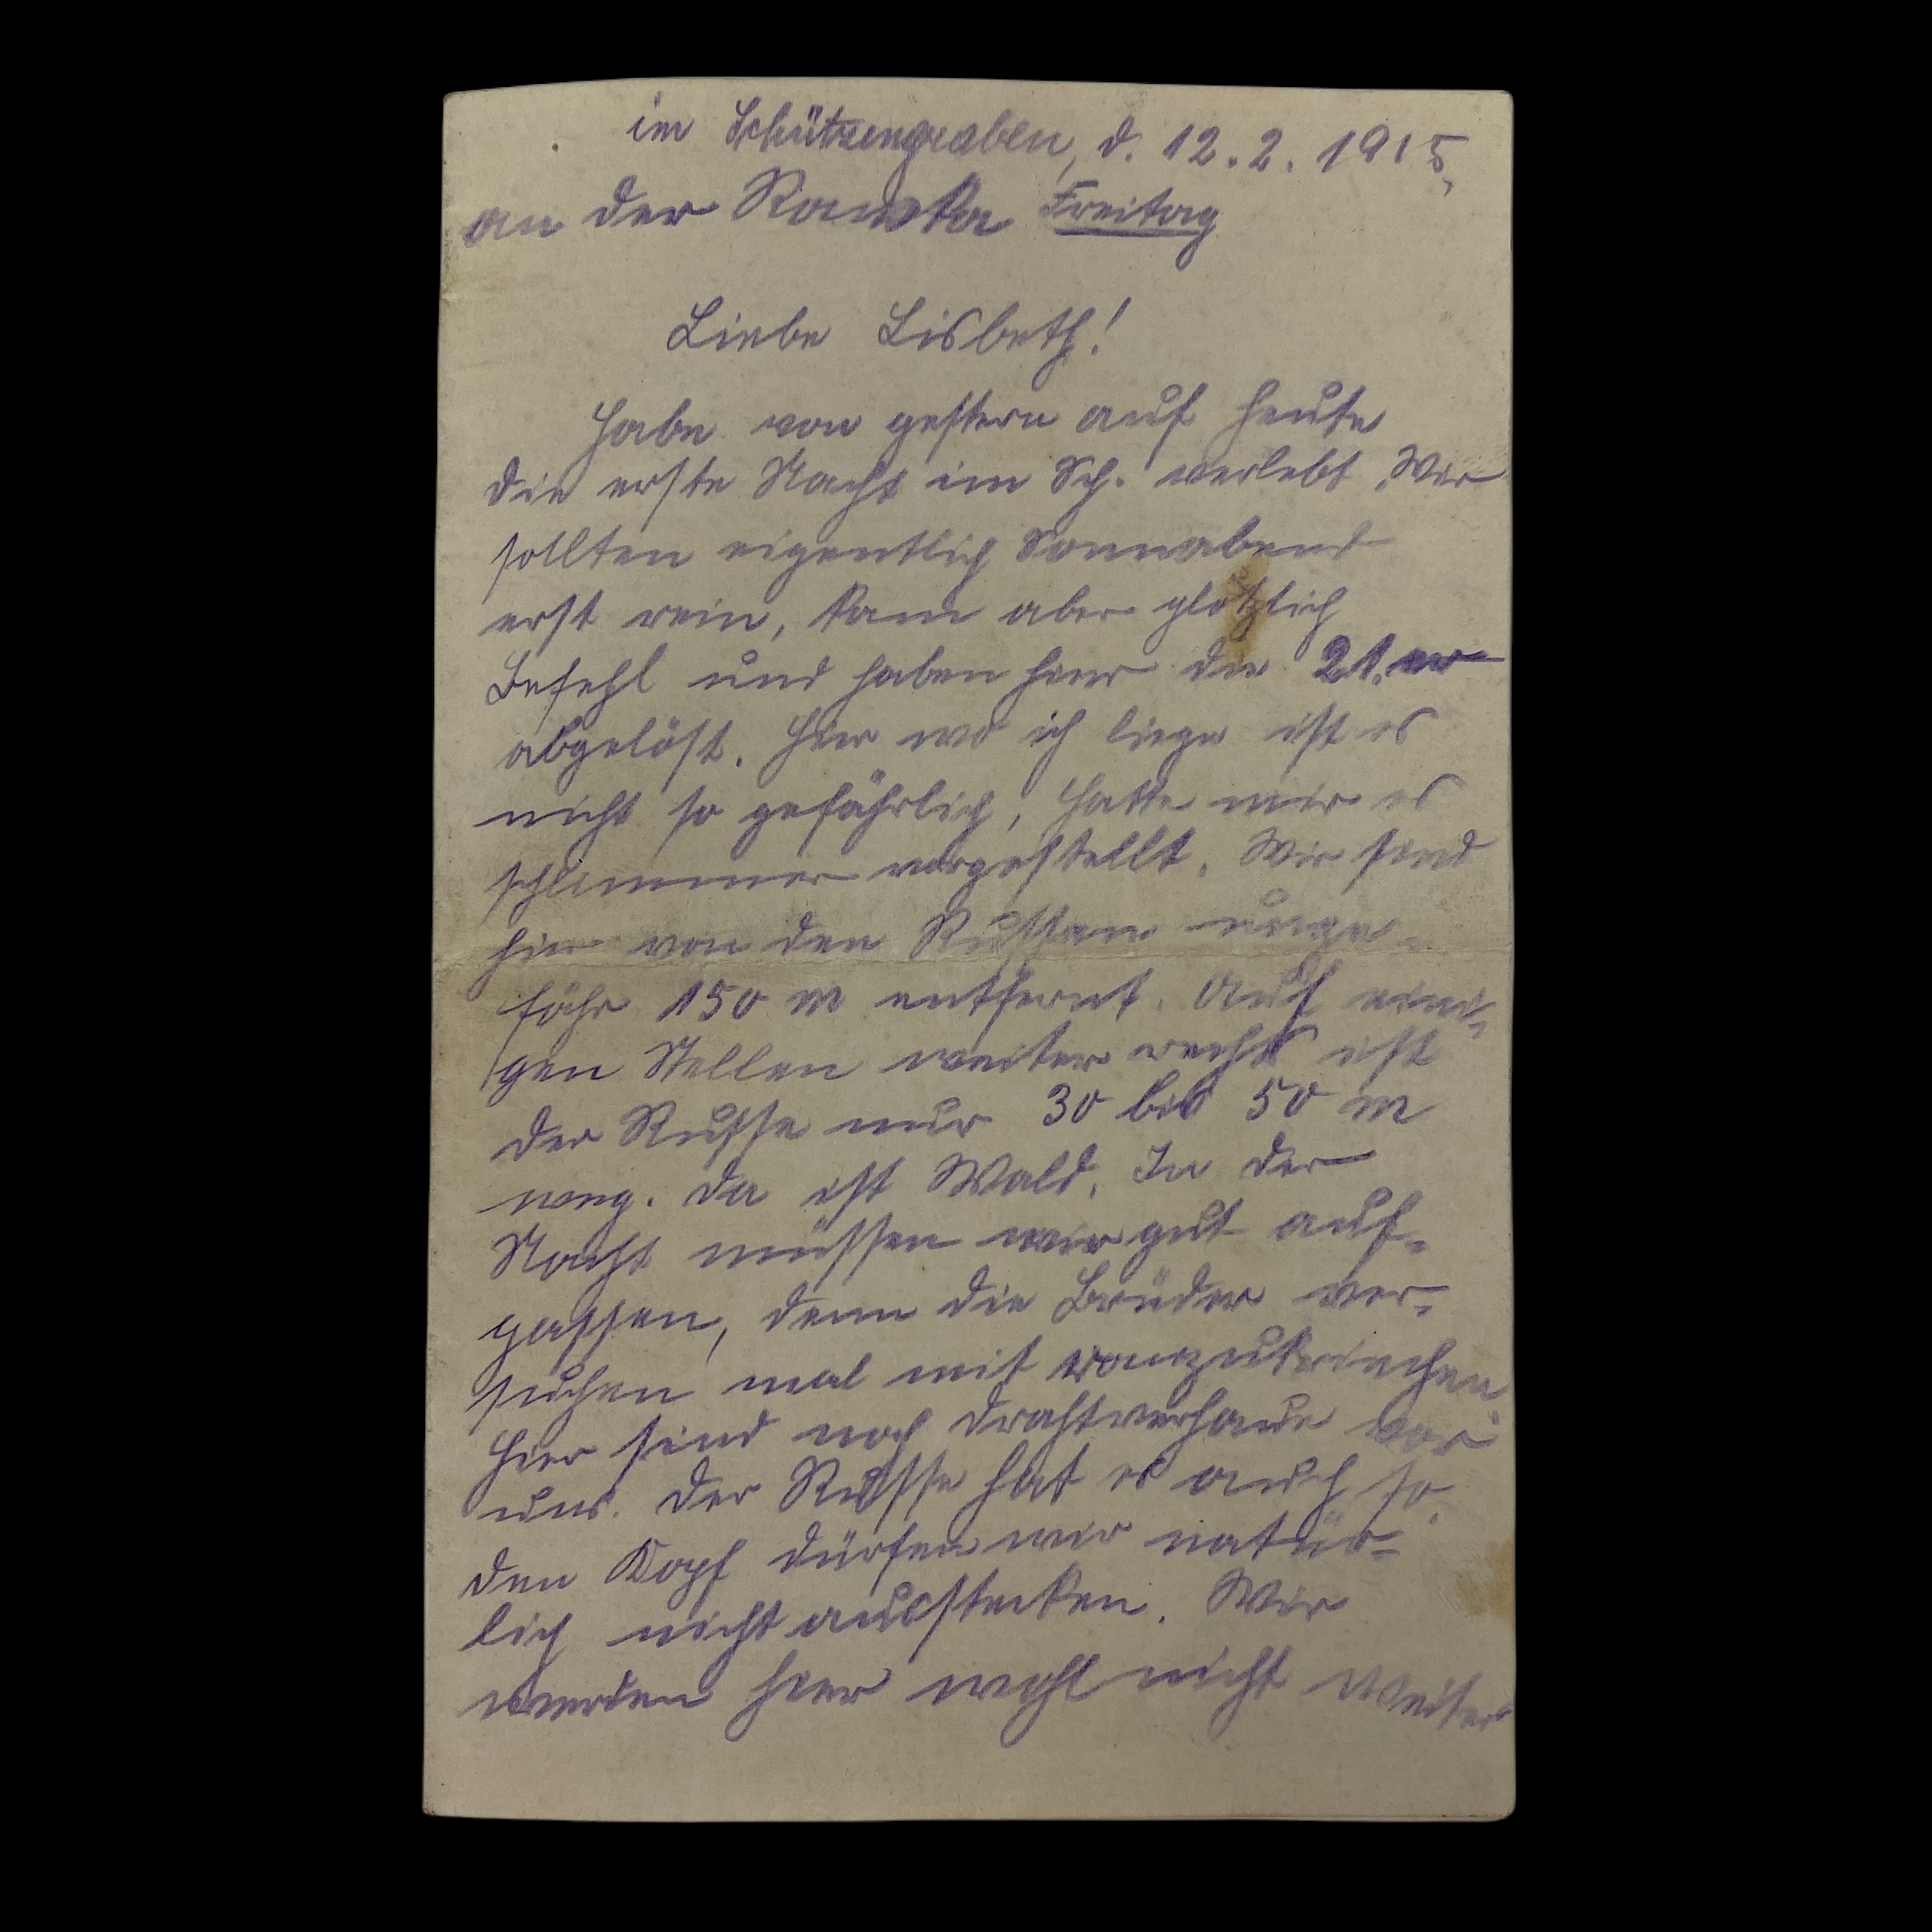 im Schützengraben, d. 12.2.1915,
an der Rawka Freitag
Liebe Lisbeth!
Habe von gestern auf heute
die erste Nacht im Sch. verlebt. Wir
sollten eigentlich Sonnabend
erst rein, kam aber plötzlich
Befehl und haben hier die 21.er
abgelöst. Hier wo ich liege ist es
nicht so gefährlich, hatte mir es
schlimmer vorgestellt. Wir sind
hier von den Russen unge-
fähr 150 m entfernt. Auf eini-
gen Stellen weiter rechts ist
der Russe nur 30 bis 50 m
weg. Da ist Wald. In der
Nacht müssen wir gut auf-
passen, denn die Brüder ver-
suchen mal mit ranzukriechen.
Hier sind noch Drahtverhaue vor
uns. Der Russe hat es auch so.
Den Kopf dürfen wir natür-
lich nicht ausstecken. Wir
werden hier wohl nicht weiter